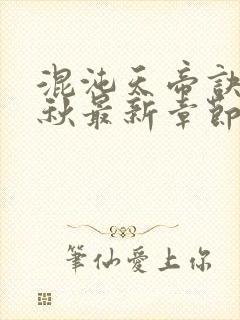 混沌天帝訣
秋最新章節
筆仙愛上你